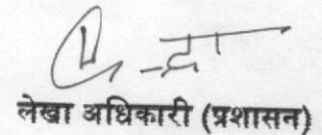 लेखा अधिकारी (प्रशासन)